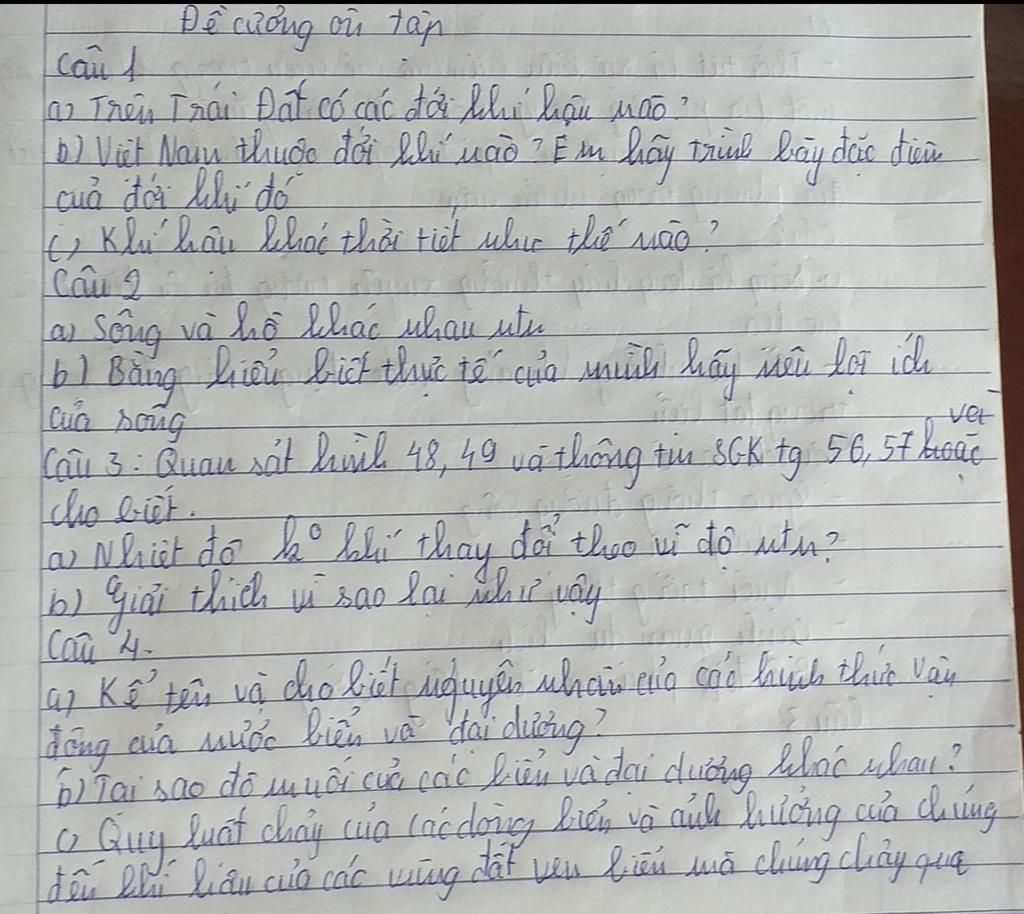 Đề cương ôn tập
Câu 1
a) Trên Trái Đất có các đới khí hậu nào?
b) Việt Nam thuộc đới khí nào? Em hãy trình bày đặc điểm
của đới khí đó
c) Khí hậu khác thời tiết như thế nào?
Câu 2
a) Sông và hồ khác nhau ntn
b) Bằng hiểu biết thực tế của mình hãy nêu lợi ích
của sông
và
Câu 3: Quan sát hình 48, 49 và thông tin SGK tg 56, 57 hoặc
cho biết.
a) Nhiệt độ k° khí thay đổi theo vĩ độ ntn?
b) Giải thích vì sao lại như vậy
Câu 4.
a) Kể tên và cho biết nguyên nhân của các hình thức vận
động của nước biển và đại dương?
b) Tại sao độ muối của các biển và đại dương khác nhau?
c) Quy luật chảy của các dòng biển và ảnh hưởng của chúng
đến khí hậu của các vùng đất ven biển mà chúng chảy qua